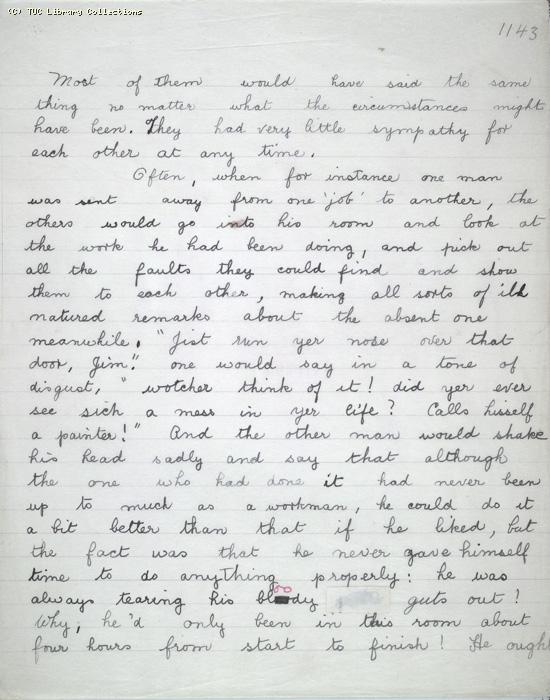 (C) TUC Library Collections
1143
Most of them would have said the same
thing no matter what the circumstances might
have been. They had very little sympathy for
each other at any time.
Often, when for instance one man
was sent away from one 'job' to another, the
others would go into his room and look at
the work he had been doing, and pick out
all the faults they could find and show
them to each other, making all sorts of ill
natured remarks about the absent one
meanwhile. "Jist run yer nose over that
door, Jim." one would say in a tone of
disgust, "wotcher think of it! did yer ever
see sich a mess in yer life? Calls hisself
a painter!" And the other man would shake
his head sadly and say that although
the one who had done it had never been
up to much as a workman, he could do it
a bit better than that if he liked, but
the fact was that he never gave himself
time to do anything properly: he was
always tearing his bloody guts out!
Why, he'd only been in this room about
four hours from start to finish! He ought